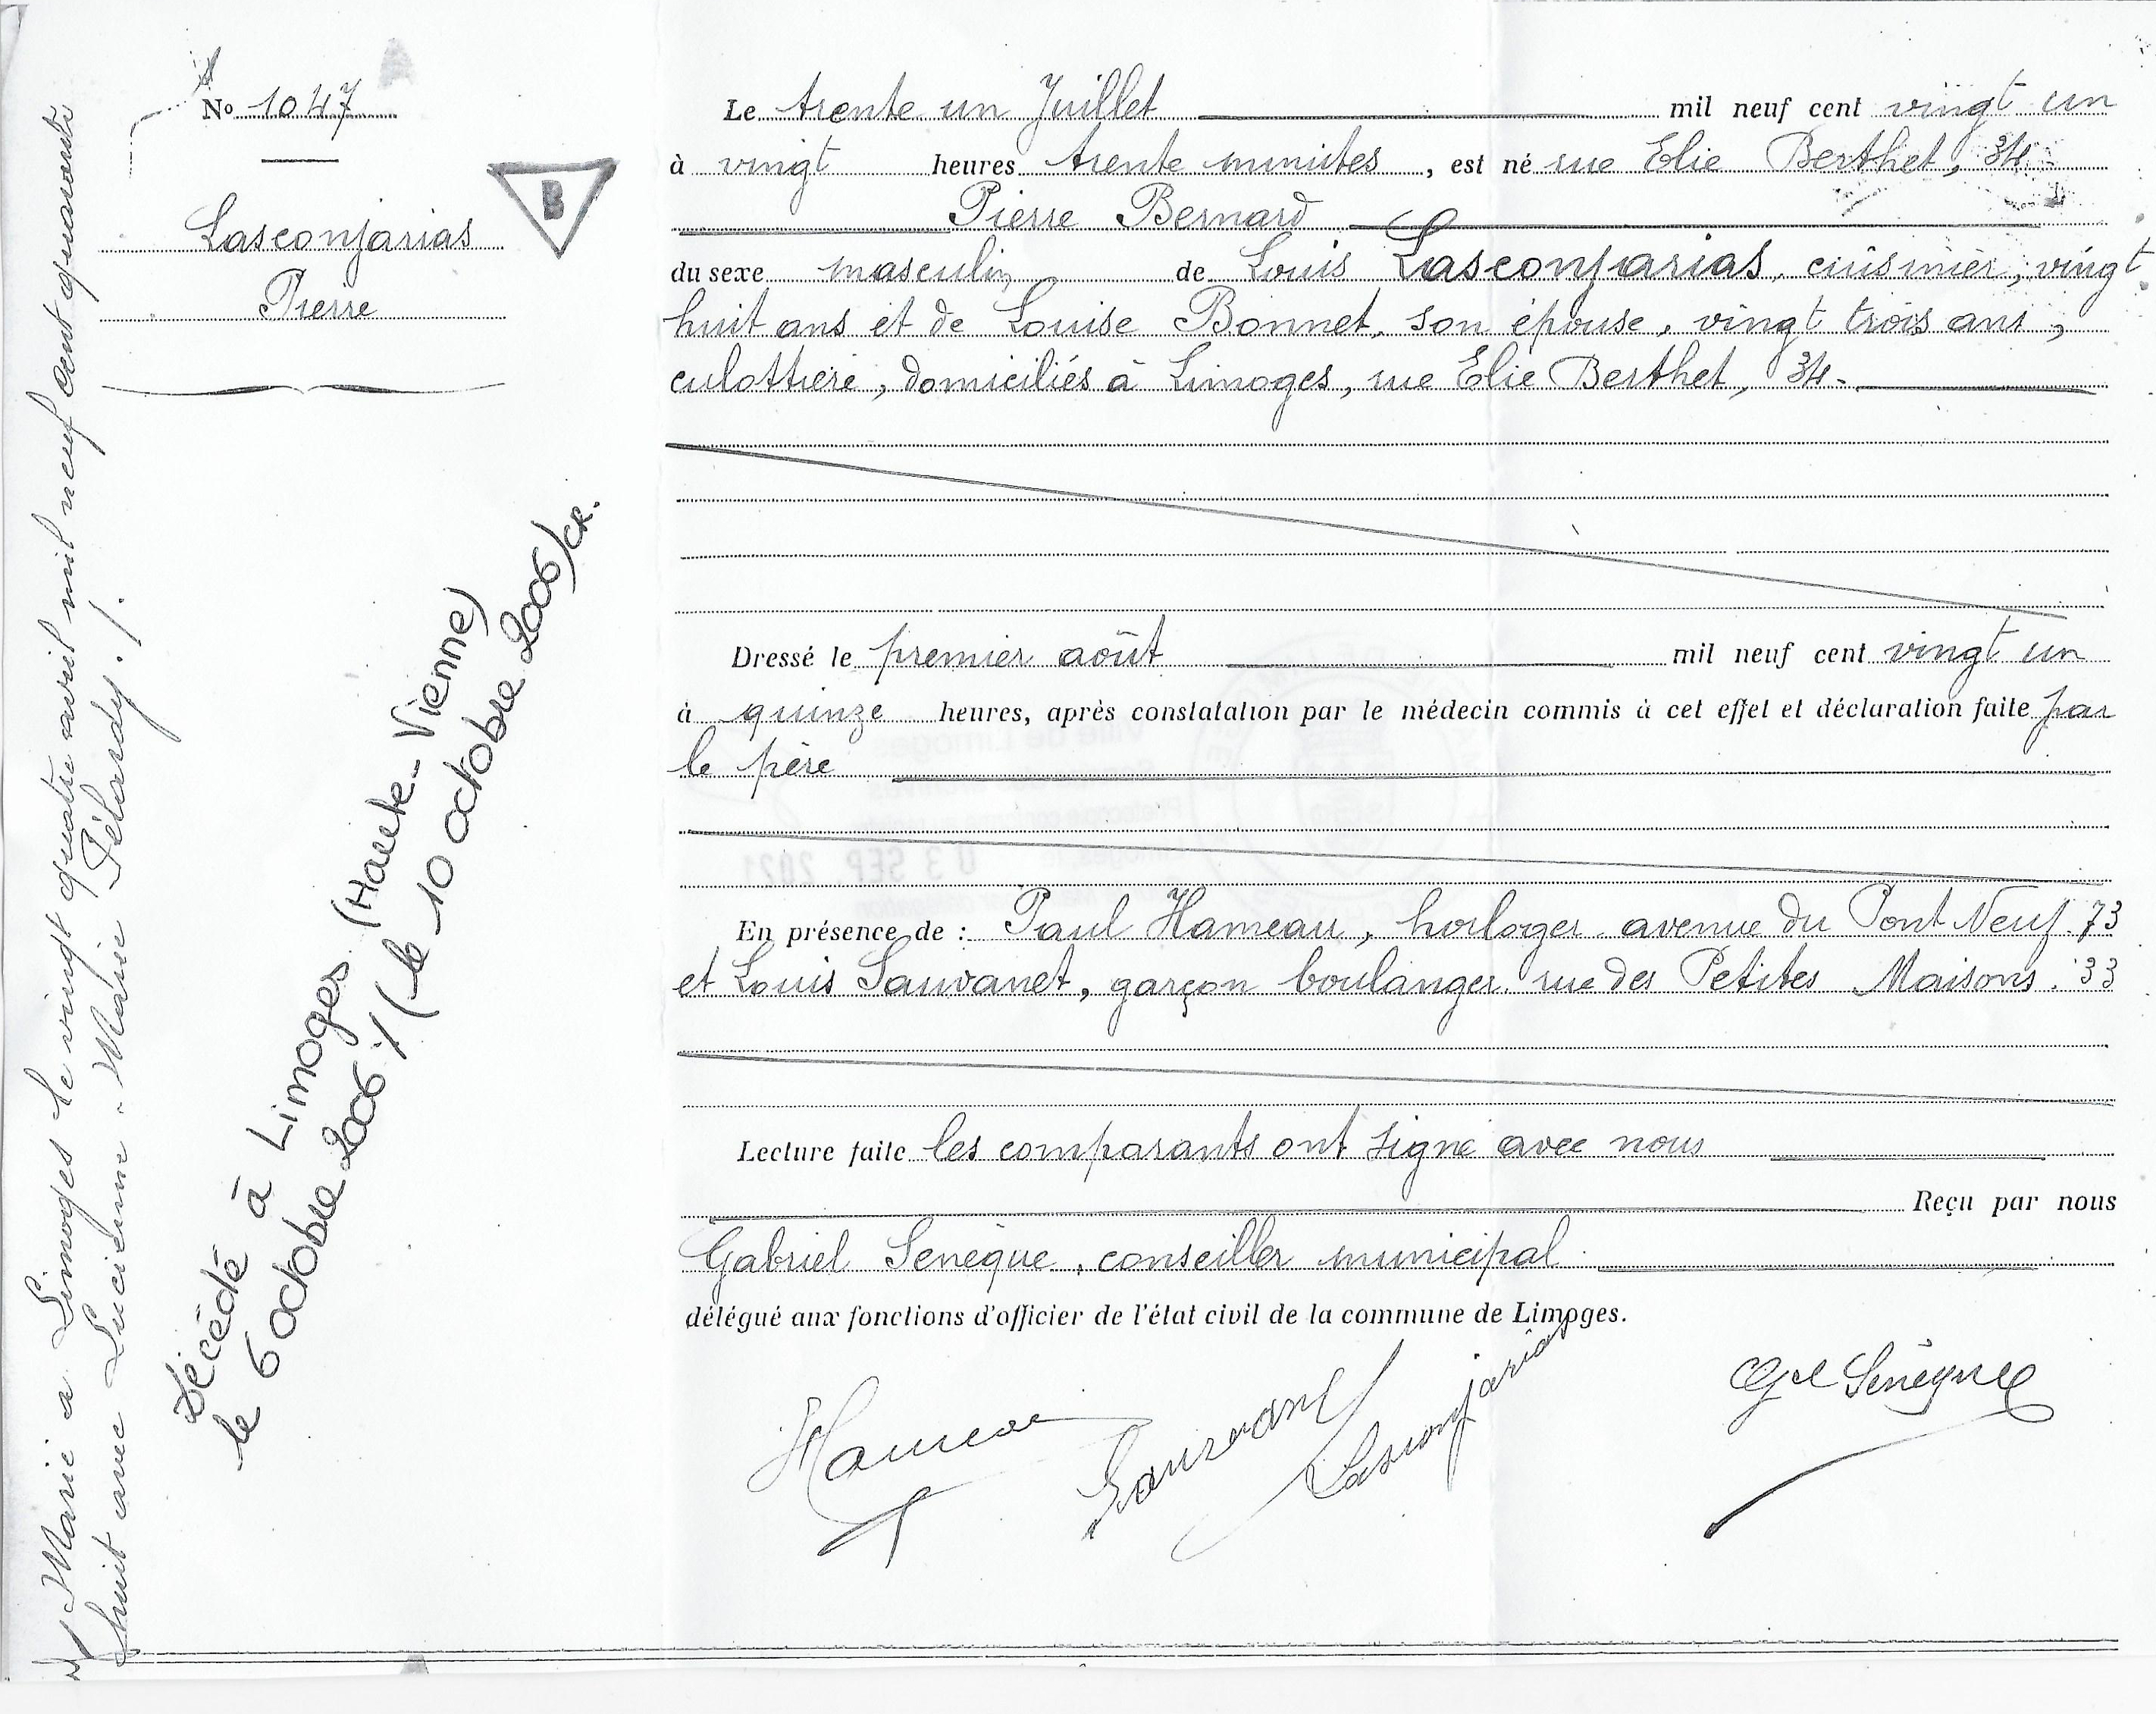 N° 1047
Lasconjarias
Pierre
B
Marié à Limoges le vingt quatre avril mil neuf cent quarante
huit avec Lucienne Marie Pélaudy ./.
Décédé à Limoges (Haute-Vienne)
le 6 octobre 2006 ./. (le 10 octobre 2006) CR.
Le trente un Juillet mil neuf cent vingt un
à vingt heures trente minutes, est né rue Elie Berthet, 34
Pierre Bernard
du sexe masculin de Louis Lasconjarias, cuisinier, vingt
huit ans et de Louise Bonnet, son épouse, vingt trois ans,
culottière, domiciliés à Limoges, rue Elie Berthet, 34.
Dressé le premier août mil neuf cent vingt un
à quinze heures, après constatation par le médecin commis à cet effet et déclaration faite par
le père
Ville de Limoges
03 SEP. 2021
En présence de : Paul Hameau, horloger avenue du Pont Neuf. 73
et Louis Sauvanet, garçon boulanger rue des Petites Maisons. 33
Lecture faite les comparants ont signé avec nous
Reçu par nous
Gabriel Senèque, conseiller municipal
délégué aux fonctions d'officier de l'état civil de la commune de Limoges.
Hameau Sauvanet Lasconjarias Gel Senèque